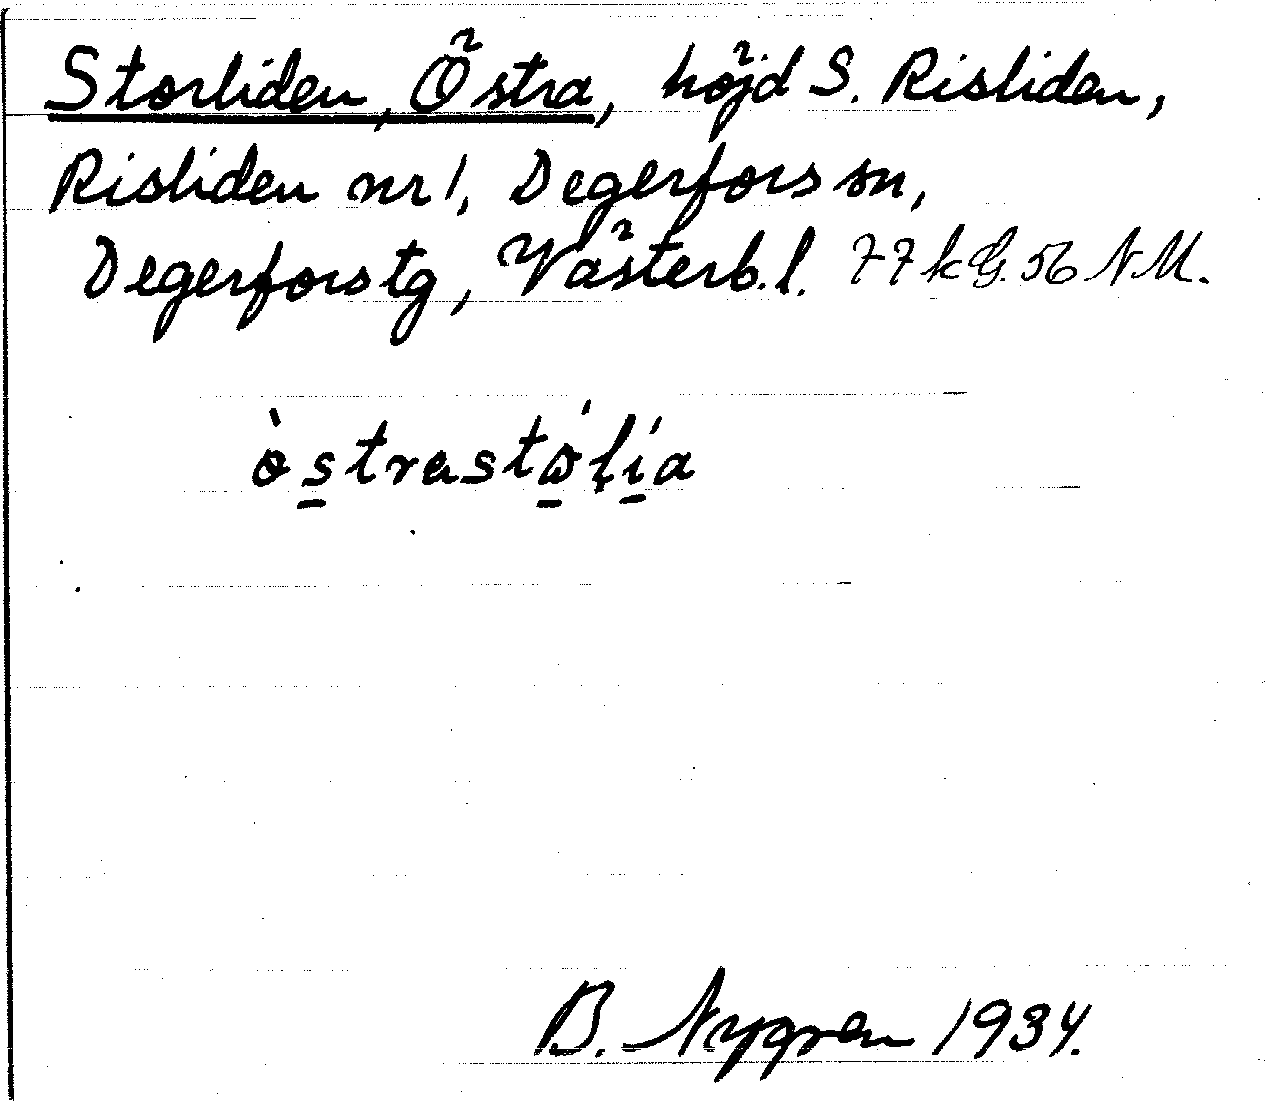 Storliden, Östra, höjd S. Risliden,
Risliden nr 1, Degerfors sn,
Degerfors tg, Västerb. l. 77 k G. 56 N M.
B. Nygren 1934.